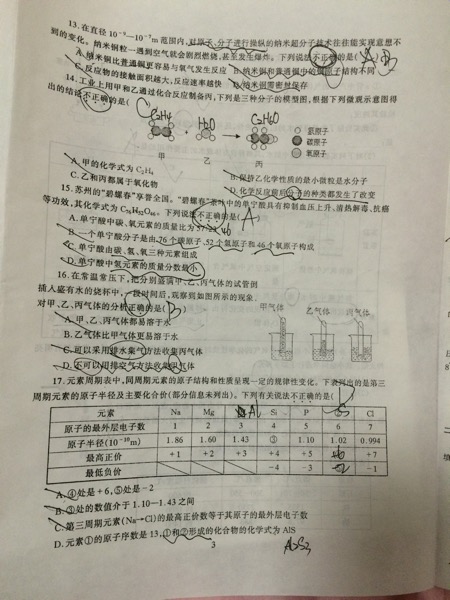 13.在直径10⁻⁹—10⁻⁷m范围内,对原子、分子进行操纵的纳米超分子技术往往能实现意想不
到的变化。纳米铜粒一遇到空气就会剧烈燃烧,甚至发生爆炸。下列说法不正确的是( B
A.纳米铜比普通铜更容易与氧气发生反应 B.纳米铜和普通铜中的铜原子结构不同
C.反应物的接触面积越大,反应速率越快 D.纳米铜需密封保存
14.工业上用甲和乙通过化合反应制备丙,下列是三种分子的模型图,根据下列微观示意图得
出的结论不正确的是( C
C2H4 H2O C2H6O
+ → 氢原子
碳原子
甲 乙 丙 氧原子
A.甲的化学式为C₂H₄ B.保持乙化学性质的最小微粒是水分子
C.乙和丙都属于氧化物 D.化学反应前后分子的种类都发生了改变
15.苏州的“碧螺春”享誉全国。“碧螺春”茶叶中的单宁酸具有抑制血压上升、清热解毒、抗癌
等功效,其化学式为C₇₆H₅₂O₄₆。下列说法不正确的是( A )
A.单宁酸中碳、氧元素的质量比为
B.一个单宁酸分子是由76个碳原子、52个氢原子和46个氧原子构成
C.单宁酸由碳、氢、氧三种元素组成
D.单宁酸中氢元素的质量分数最小
16.在常温常压下,把分别盛满甲、乙、丙气体的试管倒
插入盛有水的烧杯中,一段时间后,观察到如图所示的现象。
对甲、乙、丙气体的分析正确的是( B )
甲气体 乙气体 丙气体
A.甲、乙、丙气体都易溶于水
B.乙气体比甲气体更易溶于水
C.可以采用排水集气方法收集丙气体
D.不可以用排空气方法收集甲气体
17.元素周期表中,同周期元素的原子结构和性质呈现一定的规律性变化。下表列出的是第三
周期元素的原子半径及主要化合价(部分信息未列出)。下列有关说法不正确的是( D
元素 Na Mg Al Si P S Cl
原子的最外层电子数 1 2 3 4 5 6 7
原子半径(10⁻¹⁰m) 1.86 1.60 1.43 ③ 1.10 1.02 0.994
最高正价 +1 +2 +3 +4 +5 +6 +7
最低负价 -4 -3 -2 -1
A.④处是+6,⑤处是-2
B.③处的数值介于1.10—1.43之间
C.第三周期元素(Na→Cl)的最高正价数等于其原子的最外层电子数
D.元素①的原子序数是13,①和②形成的化合物的化学式为AlS
Al2S3
3